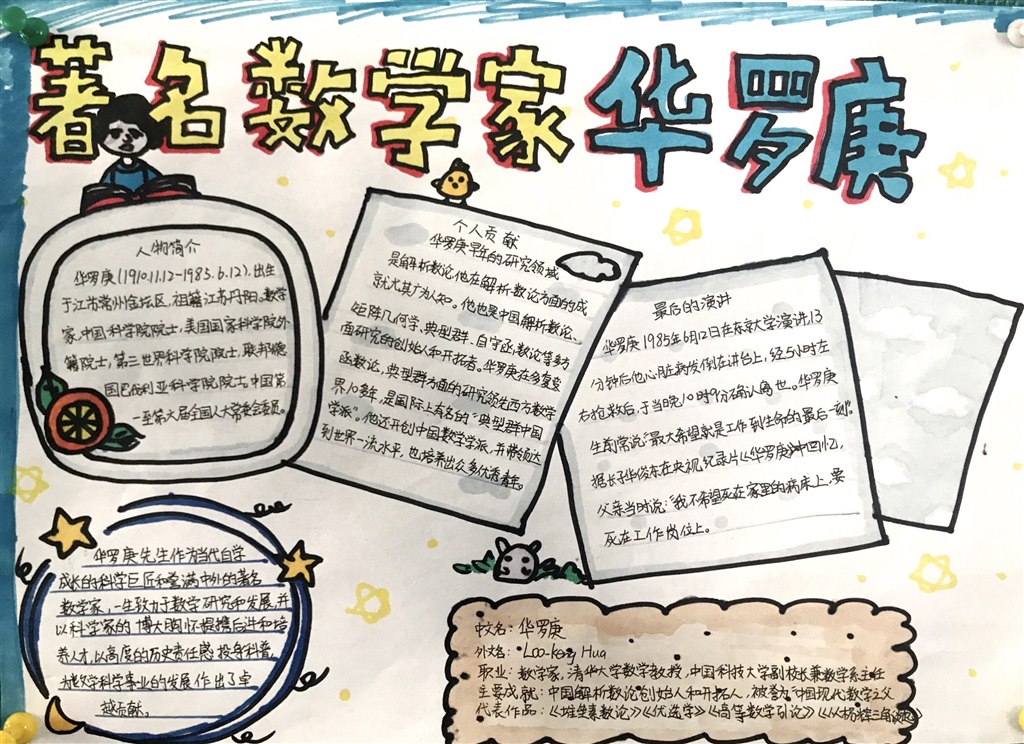 著名数学家华罗庚
人物简介
华罗庚(1910.11.12-1985.6.12),出生
于江苏常州金坛区,祖籍江苏丹阳。数学
家,中国科学院院士,美国国家科学院外
籍院士,第三世界科学院院士,联邦德
国巴伐利亚科学院院士。中国第
一至第六届全国人大常委会委员。
个人贡献
华罗庚早年的研究领域
是解析数论,他在解析数论方面的成
就尤其广为人知。他也是中国解析数论、
矩阵几何学、典型群、自守函数论等多方
面研究的创始人和开拓者。华罗庚在多复变
函数论,典型群方面的研究领先西方数学
界10多年,是国际上有名的“典型群中国
学派”。他还开创中国数学学派,并带领达
到世界一流水平,也培养出众多优秀青年。
最后的演讲
华罗庚1985年6月12日在东京大学演讲,13
分钟后他心脏病发倒在讲台上,经5小时左
右抢救后,于当晚10时9分确认离世。华罗庚
生前常说“最大希望就是工作到生命的最后一刻”。
据长子华俊东在央视纪录片《华罗庚》中回忆,
父亲当时说:“我不希望死在家里的病床上,要
死在工作岗位上。
华罗庚先生作为当代自学
成长的科学巨匠和誉满中外的著名
数学家,一生致力于数学研究和发展,并
以科学家的博大胸怀提携后进和培
养人才,以高度的历史责任感投身科普
为数学科学事业的发展作出了卓
越贡献。
中文名:华罗庚
外文名:Loo-Keng Hua
职业:数学家,清华大学数学教授,中国科技大学副校长兼数学系主任
主要成就:中国解析数论创始人和开拓人,被誉为“中国现代数学之父
代表作品:《堆垒素数论》《优选学》《高等数学引论》《从杨辉三角谈起》